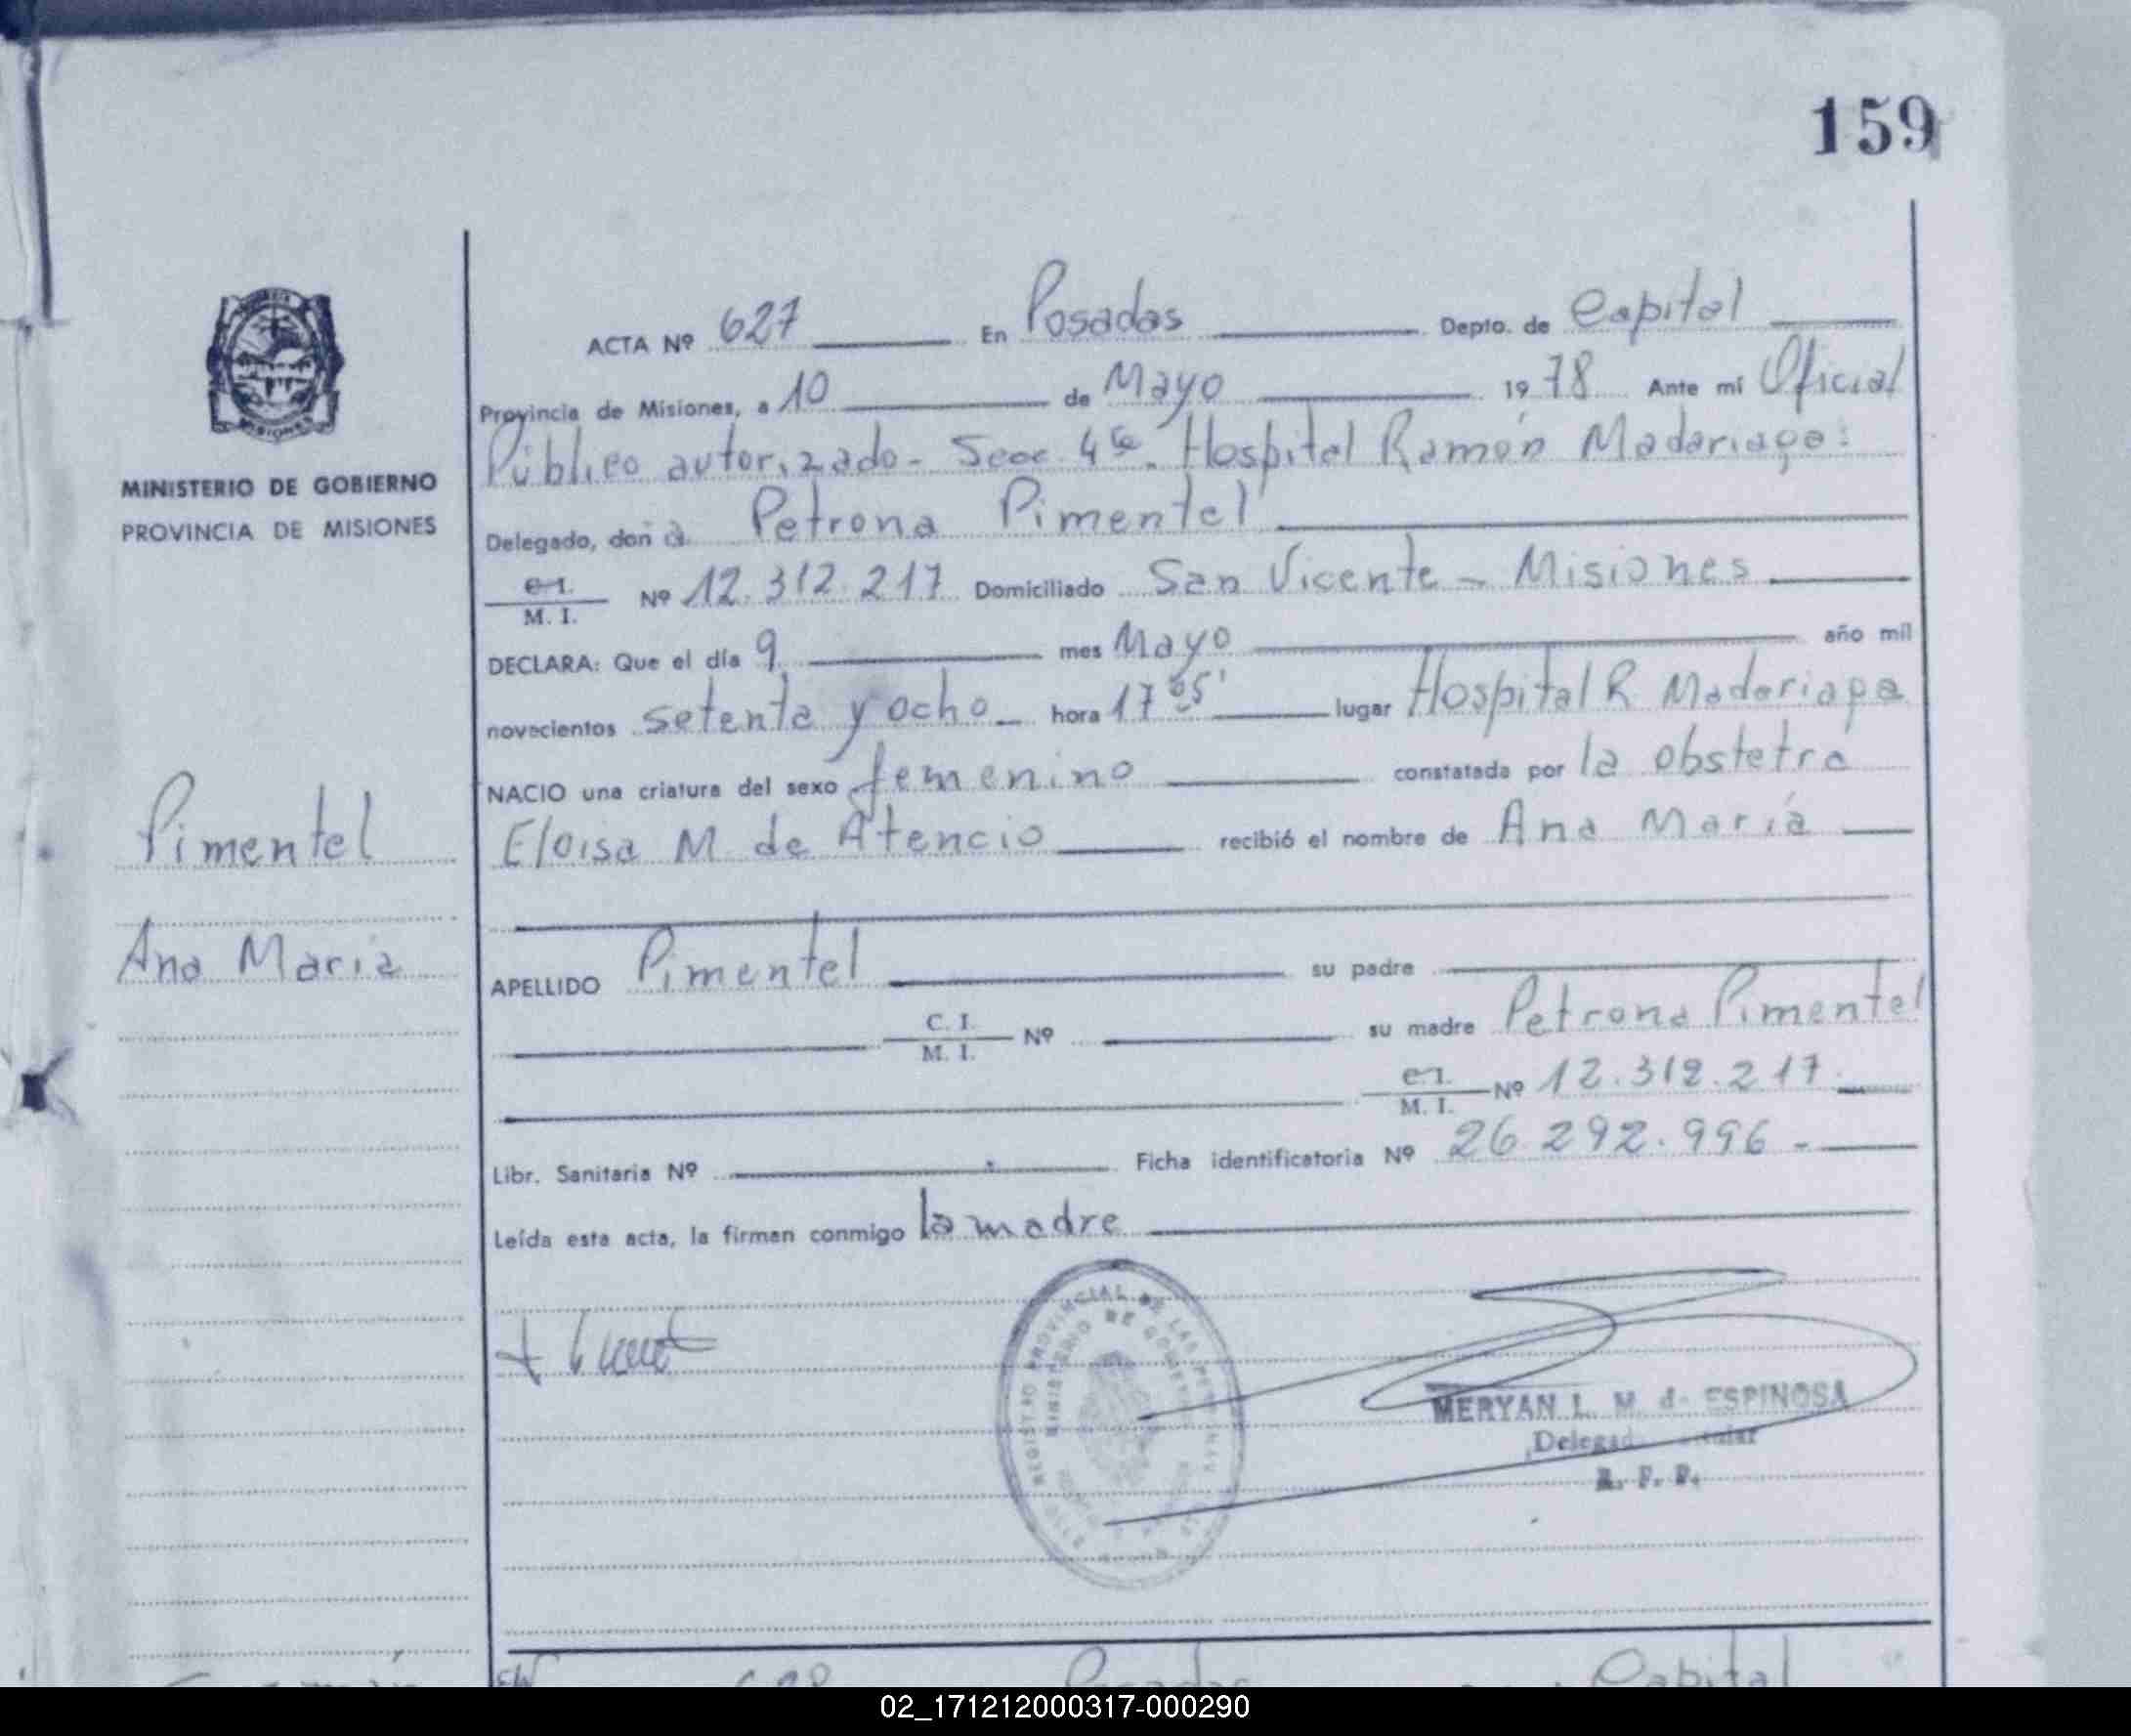 159
ACTA Nº 627 En Posadas Depto. de Capital
Provincia de Misiones, a 10 de Mayo 1978 Ante mí Oficial
Público autorizado - Secc. 4ta. Hospital Ramón Madariaga:
MINISTERIO DE GOBIERNO
PROVINCIA DE MISIONES
Delegado, don a. Petrona Pimentel
C.I.
M. I. Nº 12.312.217 Domiciliado San Vicente - Misiones
DECLARA: Que el día 9 mes Mayo año mil
novecientos setenta y ocho hora 17 05' lugar Hospital R Madariaga
NACIO una criatura del sexo femenino constatada por la obstetra
Pimentel
Eloisa M de Atencio recibió el nombre de Ana María
Ana María
APELLIDO Pimentel su padre
C. I.
M. I. Nº su madre Petrona Pimentel
C.I.
M. I. Nº 12.312.217
Libr. Sanitaria Nº Ficha identificatoria Nº 26.292.996 -
Leída esta acta, la firman conmigo la madre
REGISTRO PROVINCIAL DE LAS PERSONAS
MINISTERIO DE GOBIERNO
MERYAN L. M. de ESPINOSA
Delegada Titular
R. P. P.
628 Posadas Capital
02_171212000317-000290